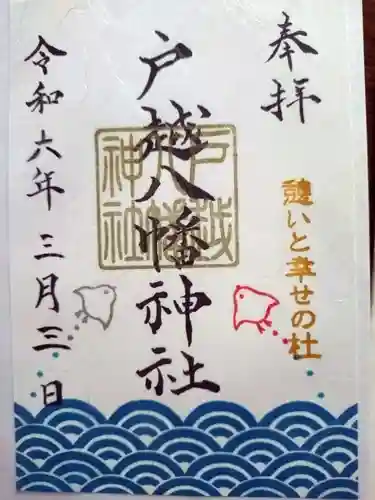 奉拝
憩いと幸せの杜
戸越八幡神社
戸越八幡神社
令和六年三月三日